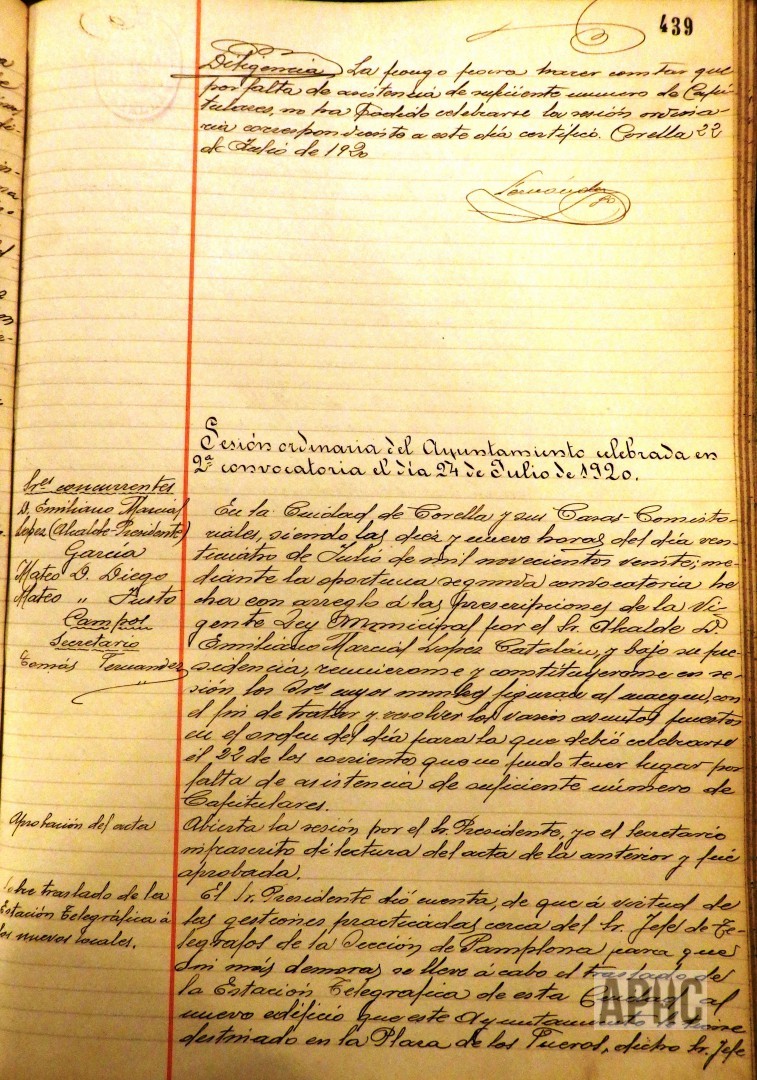 439
Diligencia La pongo para hacer constar que
por falta de asistencia de suficiente número de Capi-
tulares, no ha podido celebrarse la sesión ordina-
ria correspondiente a este día certifico. Corella 22
de Julio de 1920
Fernández
Sesión ordinaria del Ayuntamiento celebrada en
2ª convocatoria el día 24 de Julio de 1920.
Sres concurrentes
D. Emiliano Marcial
Lopez (Alcalde-Presidente)
Garcia
Mateo D. Diego
Mateo " Justo
Campos
Secretario
Tomás Fernandez
En la Ciudad de Corella y sus Casas-Consisto-
riales, siendo las diez y nueve horas del día vein-
ticuatro de Julio de mil novecientos veinte; me-
diante la oportuna segunda convocatoria he
cha con arreglo á las prescripciones de la Vi-
gente Ley Municipal por el Sr. Alcalde D.
Emiliano Marcial Lopez Catalán, y bajo su pre-
sidencia, reunierome y constituyerome en se-
sión los Sres cuyos nombres figuran al margen, con
el fin de tratar y resolver los varios asuntos puestos
en el orden del día para la que debió celebrarse
el 22 de los corriente que no pudo tener lugar por
falta de asistencia de suficiente número de
Capitulares.
Aprobación del acta
Abierta la sesión por el Sr. Presidente, yo el Secretario
infrascrito di lectura del acta de la anterior y fué
aprobada.
Sobre traslado de la
Estación Telegráfica á
los nuevos locales.
El Sr. Presidente dió cuenta, de que á virtud de
las gestiones practicadas cerca del Sr. Jefe de Te-
légrafos de la Sección de Pamplona para que
sin más demoras se lleve á cabo el traslado de
la Estación Telegráfica de esta Ciudad al
nuevo edificio que este Ayuntamiento le tiene
destinado en la Plaza de los Fueros, dicho Sr. Jefe
APUC